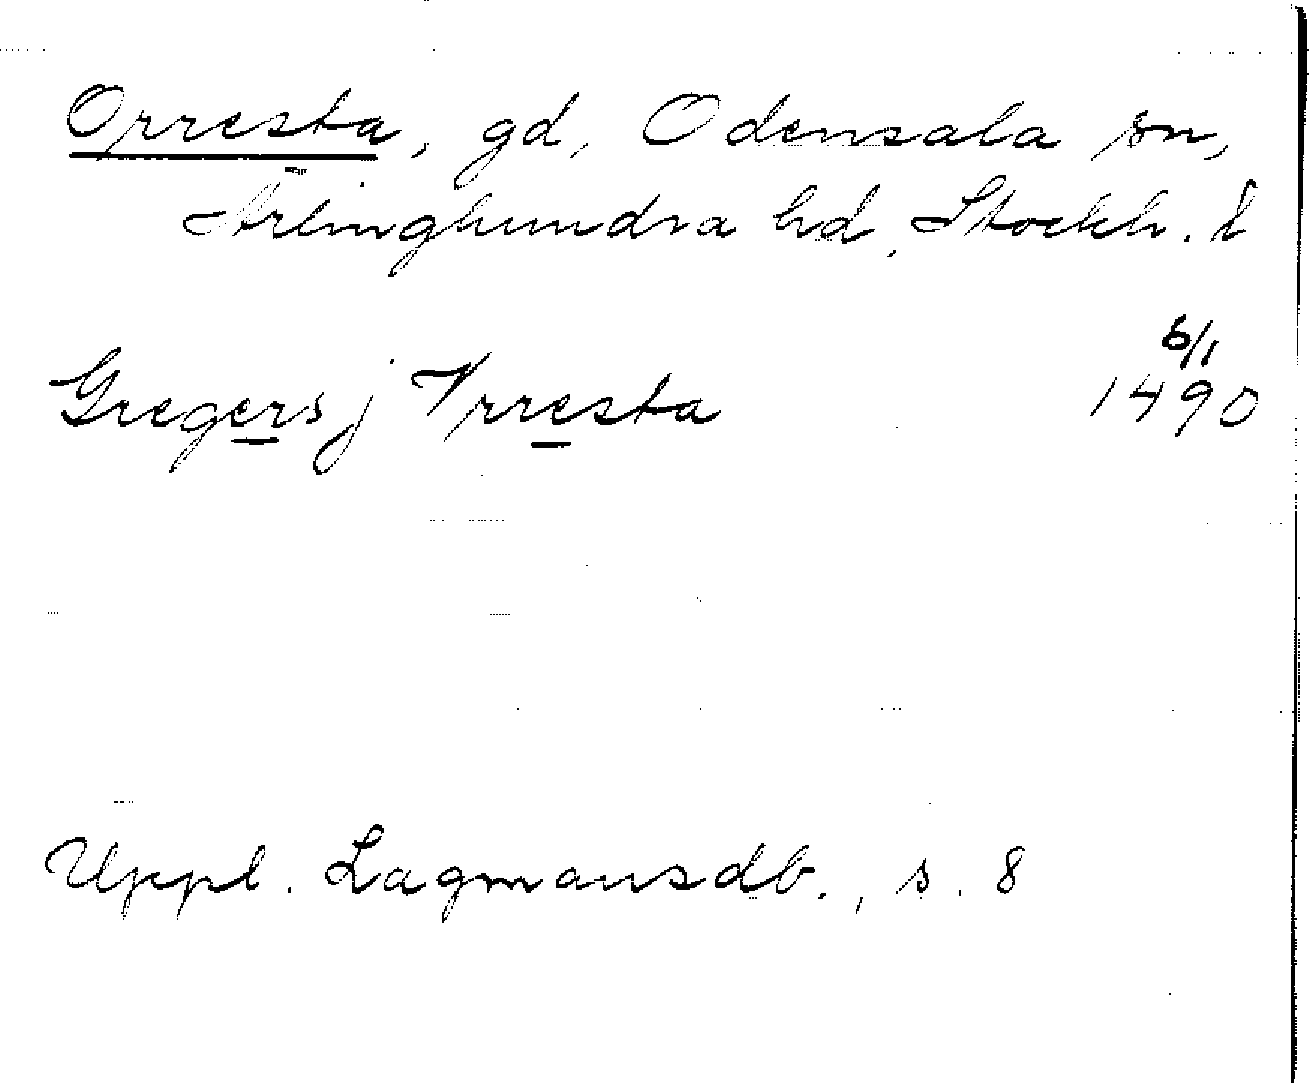 Orresta, gd, Odensala sn,
Ärlinghundra hd, Stockh. l
Gregers j Vrresta
6/1
1490
Uppl. Lagmansdb., s. 8